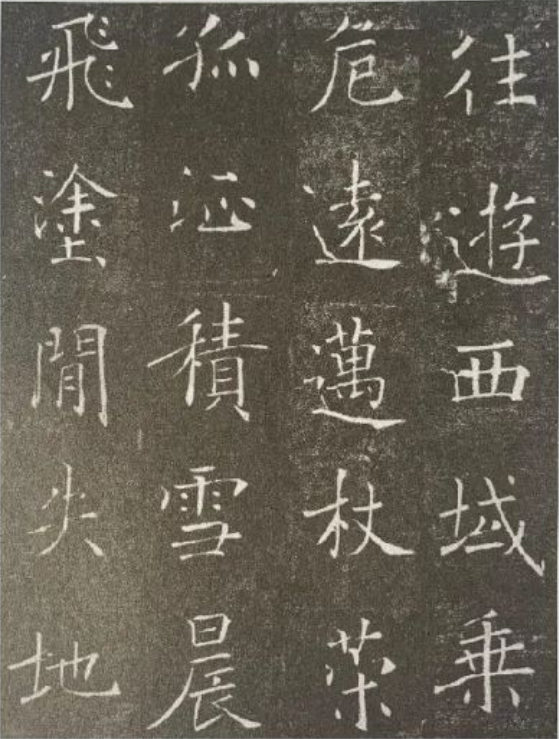 往遊西域乘
危遠邁杖策
孤征積雪晨
飛塗閒失地